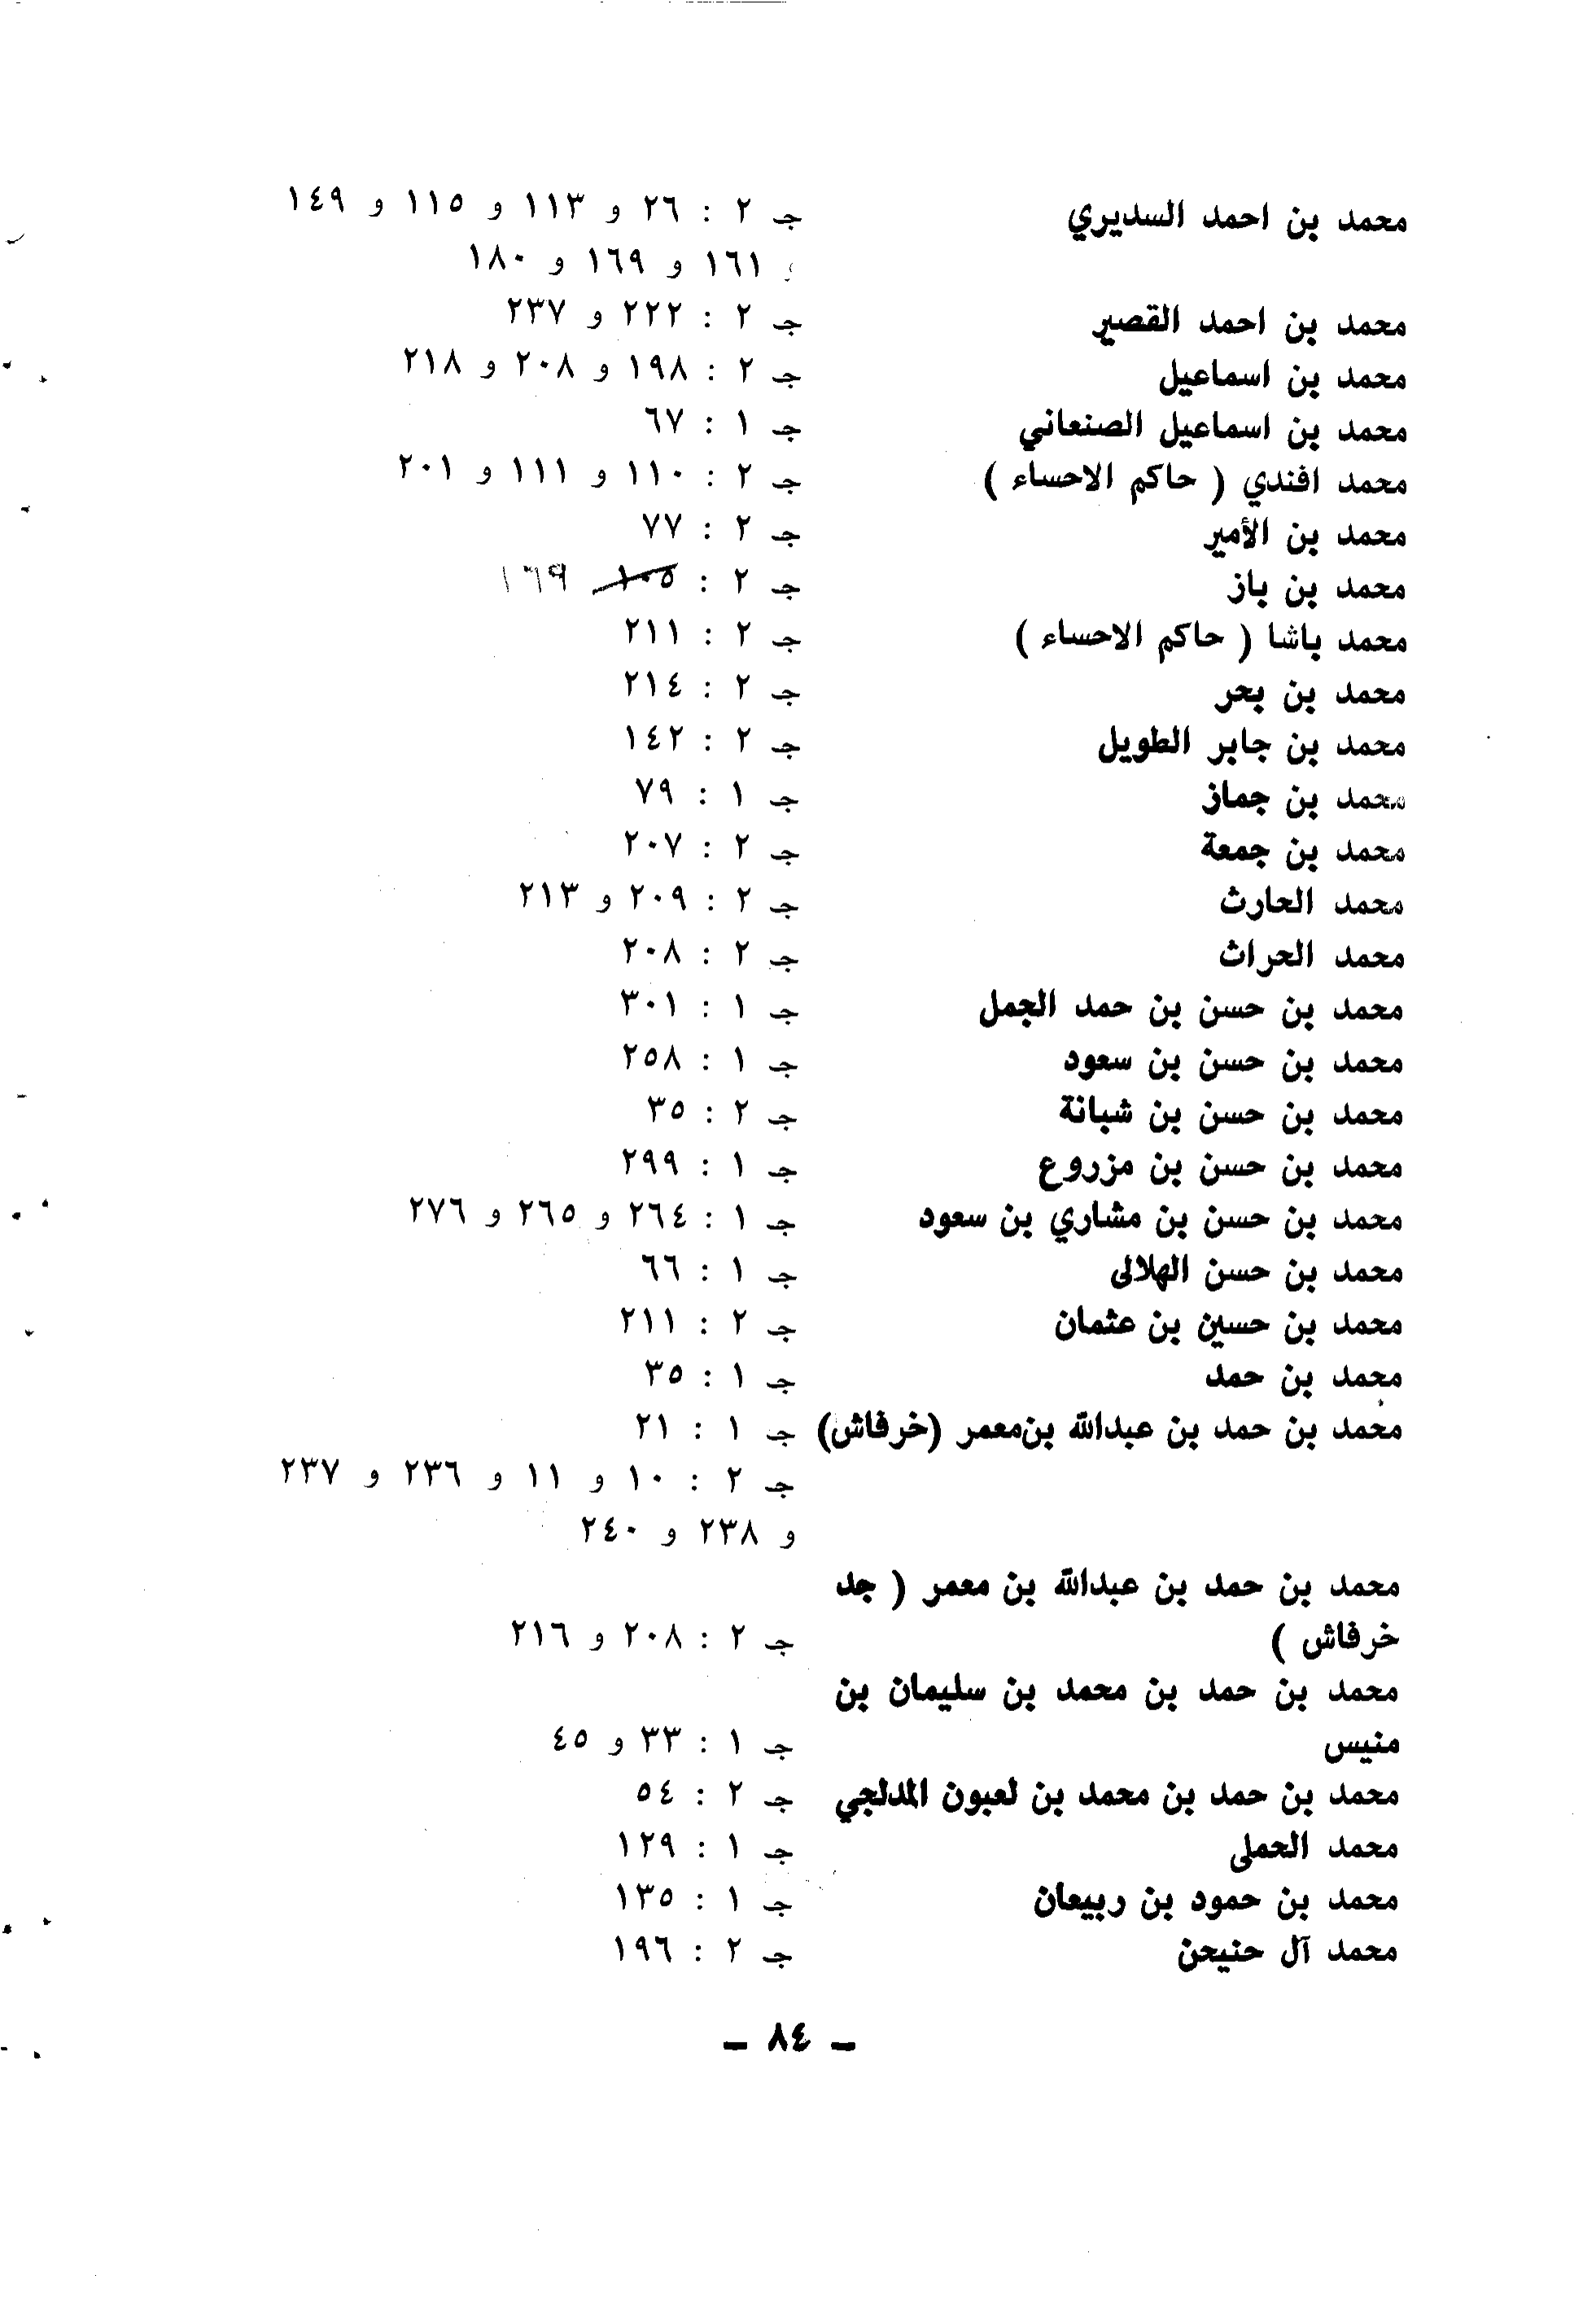 محمد بن احمد السديري جـ ٢ : ٢٦ و ١١٣ و ١١٥ و ١٤٩
و ١٦١ و ١٦٩ و ١٨٠
محمد بن احمد القصير جـ ٢ : ٢٢٢ و ٢٣٧
محمد بن اسماعيل جـ ٢ : ١٩٨ و ٢٠٨ و ٢١٨
محمد بن اسماعيل الصنعاني جـ ١ : ٦٧
محمد افندي ( حاكم الاحساء ) جـ ٢ : ١١٠ و ١١١ و ٢٠١
محمد بن الأمير جـ ٢ : ٧٧
محمد بن باز جـ ٢ : ١٠٥ ١٦٩
محمد باشا ( حاكم الاحساء ) جـ ٢ : ٢١١
محمد بن بحر جـ ٢ : ٢١٤
محمد بن جابر الطويل جـ ٢ : ١٤٢
محمد بن جماز جـ ١ : ٧٩
محمد بن جمعة جـ ٢ : ٢٠٧
محمد الحارث جـ ٢ : ٢٠٩ و ٢١٣
محمد الحراث جـ ٢ : ٢٠٨
محمد بن حسن بن حمد الجمل جـ ١ : ٣٠١
محمد بن حسن بن سعود جـ ١ : ٢٥٨
محمد بن حسن بن شبانة جـ ٢ : ٣٥
محمد بن حسن بن مزروع جـ ١ : ٢٩٩
محمد بن حسن بن مشاري بن سعود جـ ١ : ٢٦٤ و ٢٦٥ و ٢٧٦
محمد بن حسن الهلالى جـ ١ : ٦٦
محمد بن حسين بن عثمان جـ ٢ : ٢١١
محمد بن حمد جـ ١ : ٣٥
محمد بن حمد بن عبدالله بن معمر (خرفاش) جـ ١ : ٢١
جـ ٢ : ١٠ و ١١ و ٢٣٦ و ٢٣٧
و ٢٣٨ و ٢٤٠
محمد بن حمد بن عبدالله بن معمر ( جد
خرفاش ) جـ ٢ : ٢٠٨ و ٢١٦
محمد بن حمد بن محمد بن سليمان بن
منيس جـ ١ : ٣٣ و ٤٥
محمد بن حمد بن محمد بن لعبون المدلجي جـ ٢ : ٥٤
محمد الحملى جـ ١ : ١٢٩
محمد بن حمود بن ربيعان جـ ١ : ١٣٥
محمد آل حنيحن جـ ٢ : ١٩٦
– ٨٤ –